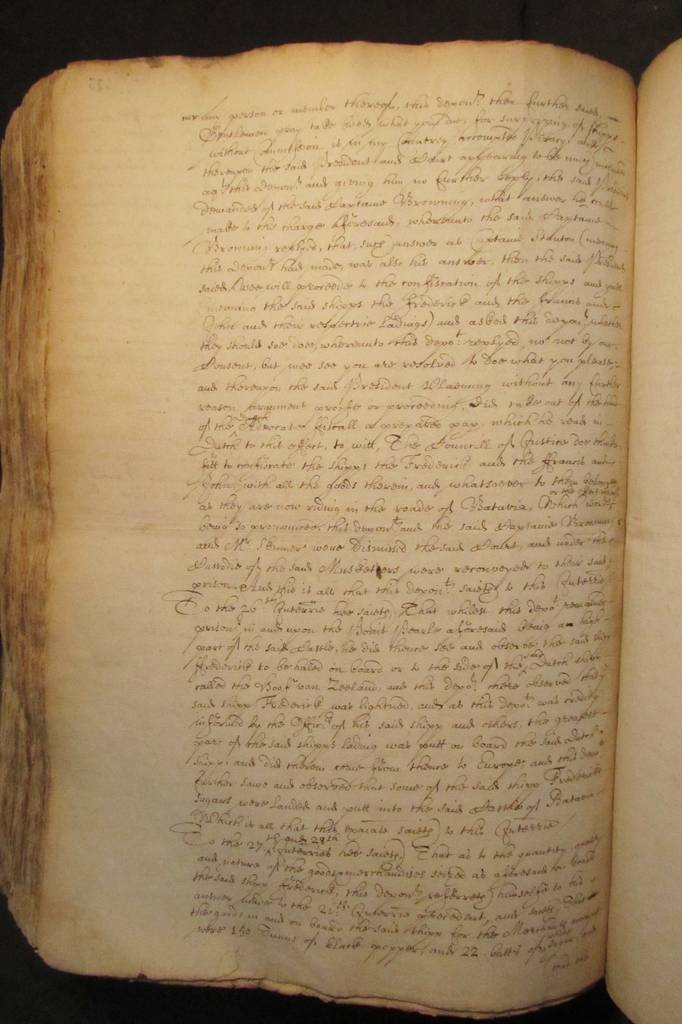 nor any person or member thereof, this depon.t then further saied
Gentlemen pray take heed what you doe, for surprizing of shipps
without Comission is in my Countrey accompted Piracy, and
thereupon the said President and Court appearing to be much
ag.t this depon.t and giving him no further reply, the said President
demanded of the said Captaine Browning, what answer he could
make to the charge aforesaid, whereunto the said Captaine
Browning replyed, that, such answer as Captaine Stanton (meaning
this depon.t) had made, was also his answer, then the said President
saied, Wee will proceede to the confiscation of the shipps and goods
meaning the said shipps the Frederick and the Francis and
John and their respective Ladings) and asked this depon.t whether
they should soe doe, whereunto this depo.t replyed no, not by our
Consent, but wee see you are resolved to doe what you please,
and thereupon the said President without any further
reason argument proofe or proceeding, did take out of the hand
of the Advocate fiscall a prepared paper, which he read in
Dutch to this effect, to witt, The Councell of Justice doe thinke
fitt to confiscate the shipps the Frederick and the Francis and
John, with all the goods therein, and whatsoever to them belongs
as they are now riding in the roade of Batavia, Which words
being so pronounced, this depon.t and the said Captaine Browning
and Mr Skinner were dismissed the said Court, and under the
Custodie of the said Musketteers were reconveyed to their said
prison. And this is all that this depon.t saieth to this Interrie
To the 26.th Interrie hee saieth, That whilest this depo.t remained
prison.r in and upon the Point Pearle aforesaid being a high
part of the said Castle, he did thence see and observe the said shipp
Frederick to be haled on board or to the side of the Dutch shipp
called the Hoof van Zeeland, and this depo.t there observed that
said shipp Frederick was lightned, and as this depo.t was credibly
informed by the Offic.rs of his said shipp and others, the greatest
part of the said shipps lading was putt on board the said Dutch
shipp, and did therein come from thence to Europe, and this depo.t
further saw and observed that some of the said shipp Fredericks
sugars were landed and putt into the said Castle of Batavia
Which is all that this examinate saieth to this Interrie
To the 27.th and 28.th Interries hee saieth, That as to the quantity quality
and nature of the goods & merchandises seized as aforesaid on board
the said shipp Frederick, this depon.t referreth himselfe to his
answer to the Interrie precedent, and saith, That
the goods in and on board the said shipp for the Merchants account
were 150 Tunns of black pepper, and 22 butts of sugar, and
that the